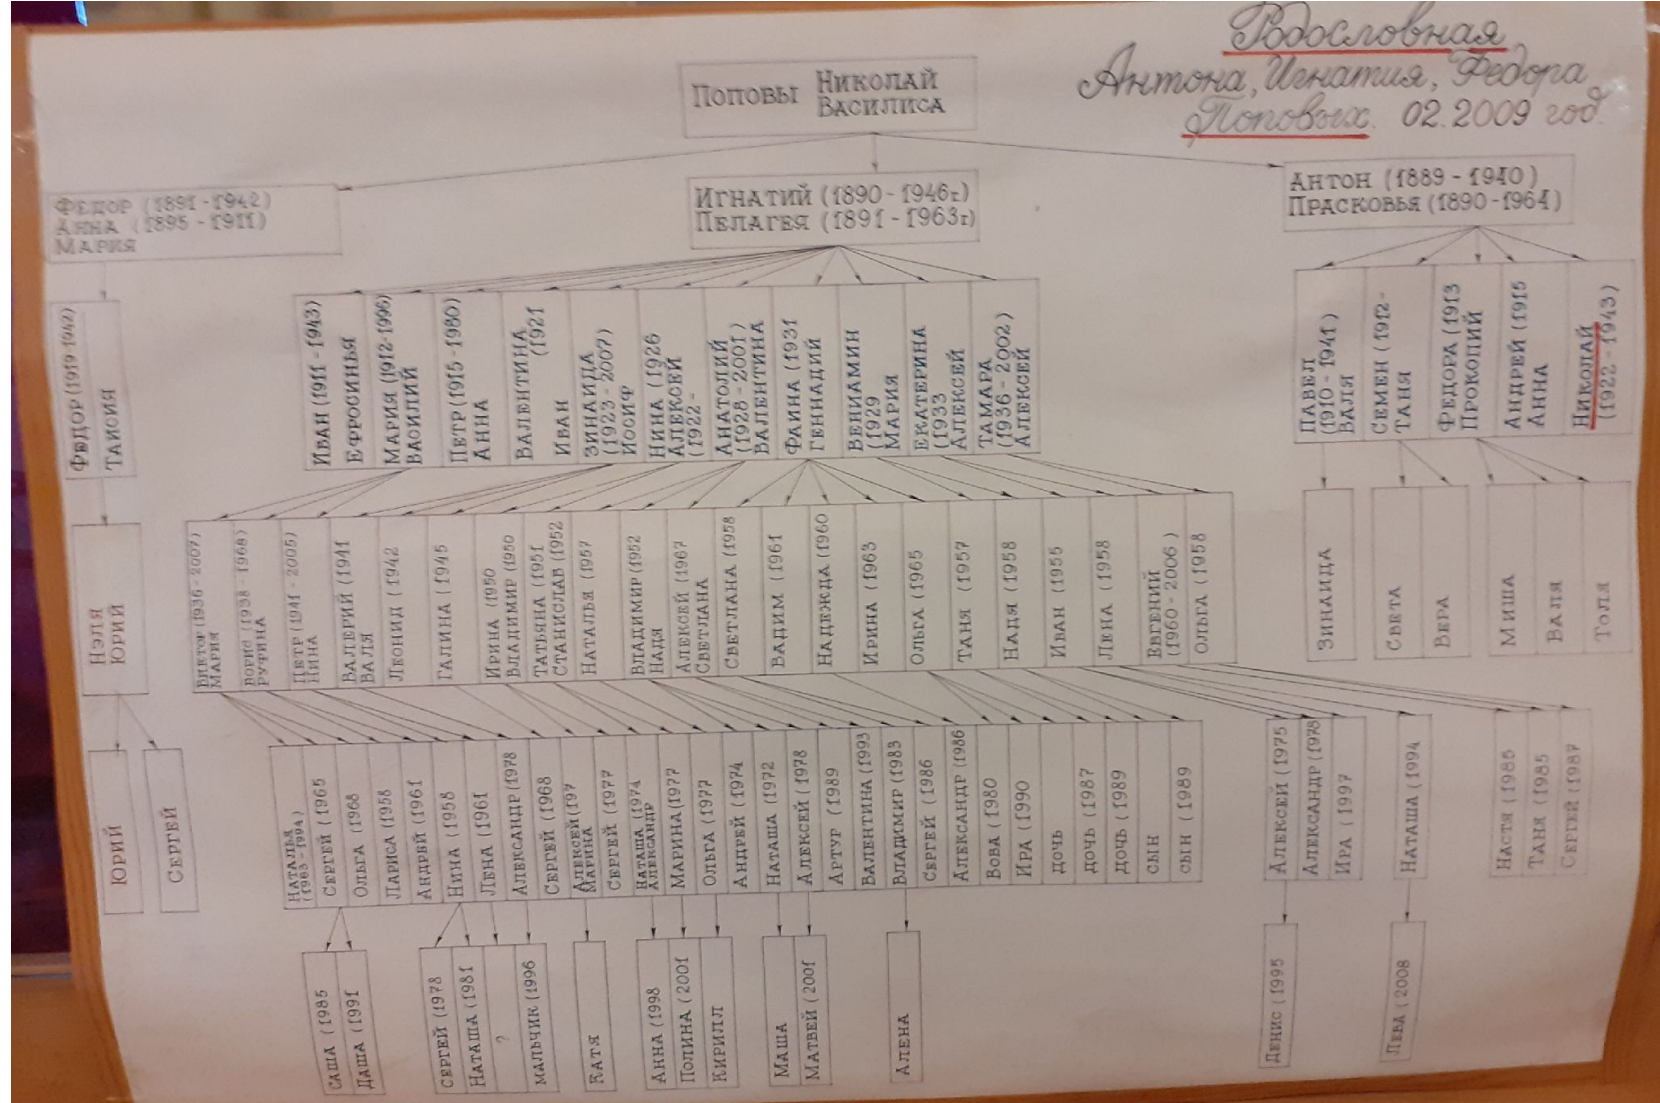 Родословная
Антона, Игнатия, Федора
Поповых. 02.2009 год.
Поповы Николай
Василиса
Федор (1891-1942)
Анна (1895-1911)
Мария
Игнатий (1890-1946г.)
Пелагея (1891-1963г)
Антон (1889-1940)
Прасковья (1890-1964)
Федор (1919-1942)
Таисия
Иван (1911-1943)
Ефросинья
Мария (1912-1996)
Василий
Петр (1915-1980)
Анна
Валентина
(1921
Иван
Зинаида
(1923-2007)
Иосиф
Нина (1926
Алексей
(1922-
Анатолий
(1928-2001)
Валентина
Фаина (1931
Геннадий
Вениамин
(1929
Мария
Екатерина
(1933
Алексей
Тамара
(1936-2002)
Алексей
Павел
(1910-1941)
Валя
Семен (1912-
Таня
Федора (1913
Прокопий
Андрей (1915
Анна
Николай
(1922-1943)
Нэля
Юрий
Виктор (1936-2007)
Мария
Борис (1938-1968)
Руфина
Петр (1941-2005)
Нина
Валерий (1941
Валя
Леонид (1942
Галина (1945
Ирина (1950
Владимир (1950
Татьяна (1951
Станислав (1952
Наталья (1957
Владимир (1952
Надя
Алексей (1967
Светлана
Светлана (1958
Вадим (1961
Надежда (1960
Ирина (1963
Ольга (1965
Таня (1957
Надя (1958
Иван (1955
Лена (1958
Евгений
(1960-2006)
Ольга (1958
Зинаида
Света
Вера
Миша
Валя
Толя
Юрий
Сергей
Наталья
(1963-1994)
Сергей (1965
Ольга (1968
Лариса (1958
Андрей (1961
Нина (1958
Лена (1961
Александр (1978
Сергей (1968
Алексей (197
Марина
Сергей (1977
Наташа (1974
Александр
Марина (1977
Ольга (1977
Андрей (1974
Наташа (1972
Алексей (1978
Артур (1989
Валентина (1993
Владимир (1983
Сергей (1986
Александр (1986
Вова (1980
Ира (1990
дочь
дочь (1987
дочь (1989
сын
сын (1989
Алексей (1975
Александр (1978
Ира (1997
Наташа (1994
Настя (1985
Таня (1985
Сергей (1987
Саша (1985
Даша (1991
Сергей (1978
Наташа (1981
?
мальчик (1996
Катя
Анна (1998
Полина (2001
Кирилл
Маша
Матвей (2001
Алена
Денис (1995
Лева (2008